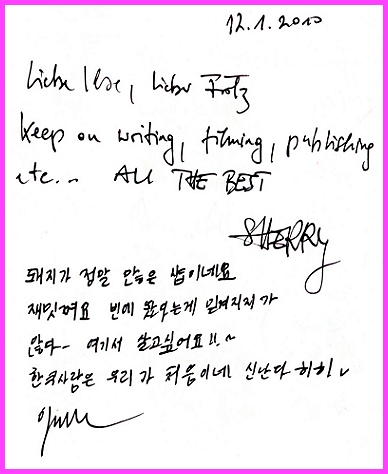 12.1.2010
Liebe Ilse, Lieber Fritz
Keep on writing, filming, publishing
etc... ALL THE BEST
SHERRY
돼지가 정말 많은 샵이네요
빈에 믿겨지지가
않다~ 여기서 살고싶어요!!~
한국사람은 우리가 처음이네! 신난다 히히